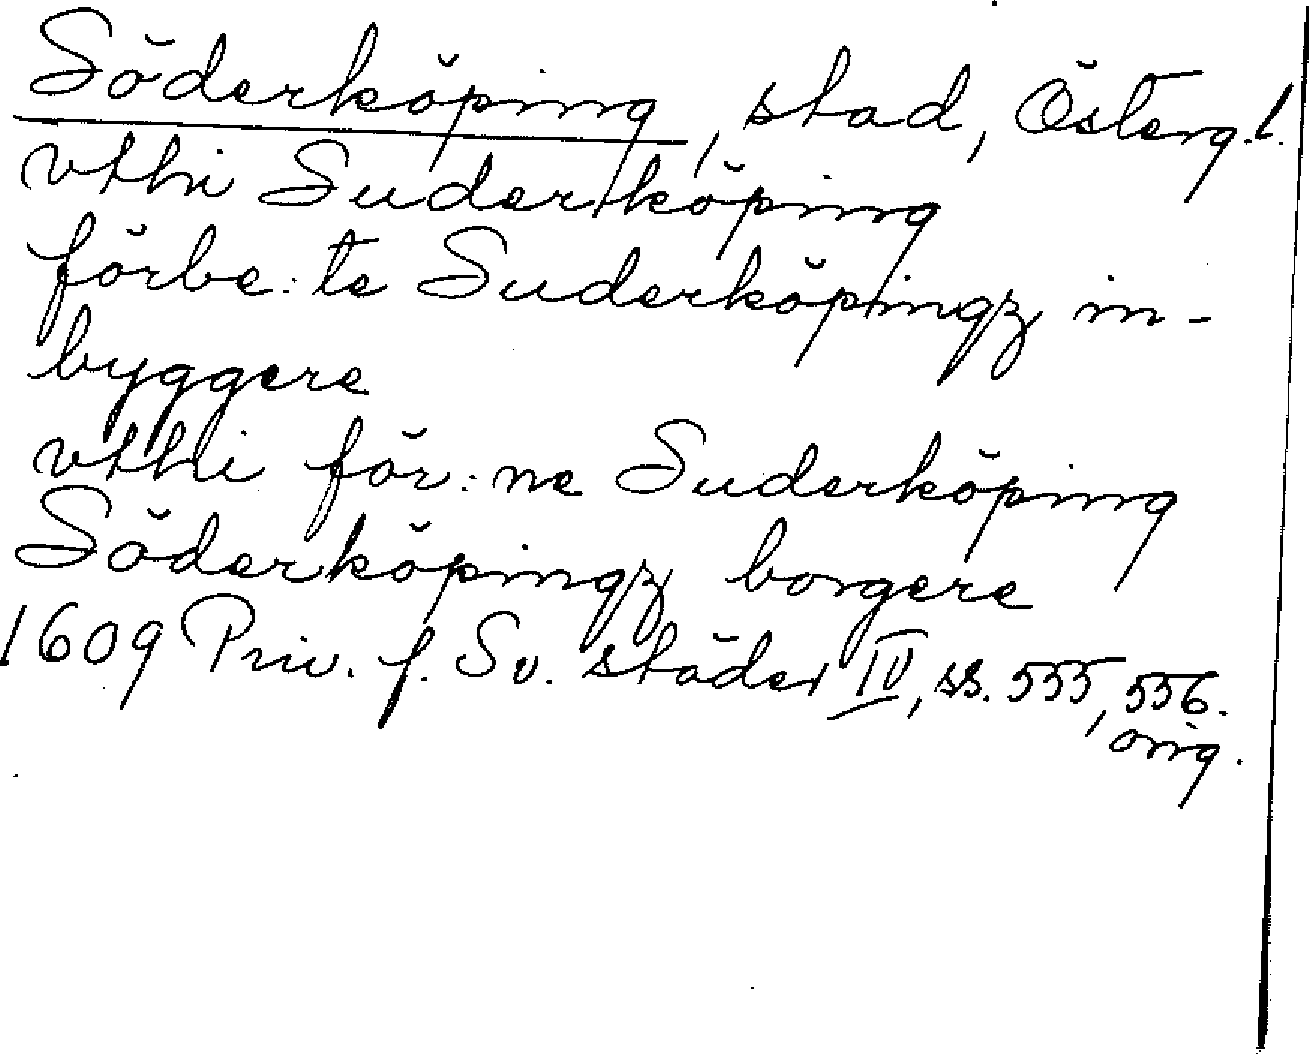 Söderköping, stad, Österg.l.
vthi Suderköping
förbe:te Suderköpingz in-
byggere
vthi för:ne Suderköping
Söderköpingz borgere
1609 Priv. f. Sv. städer IV, ss. 555, 556.
orig.